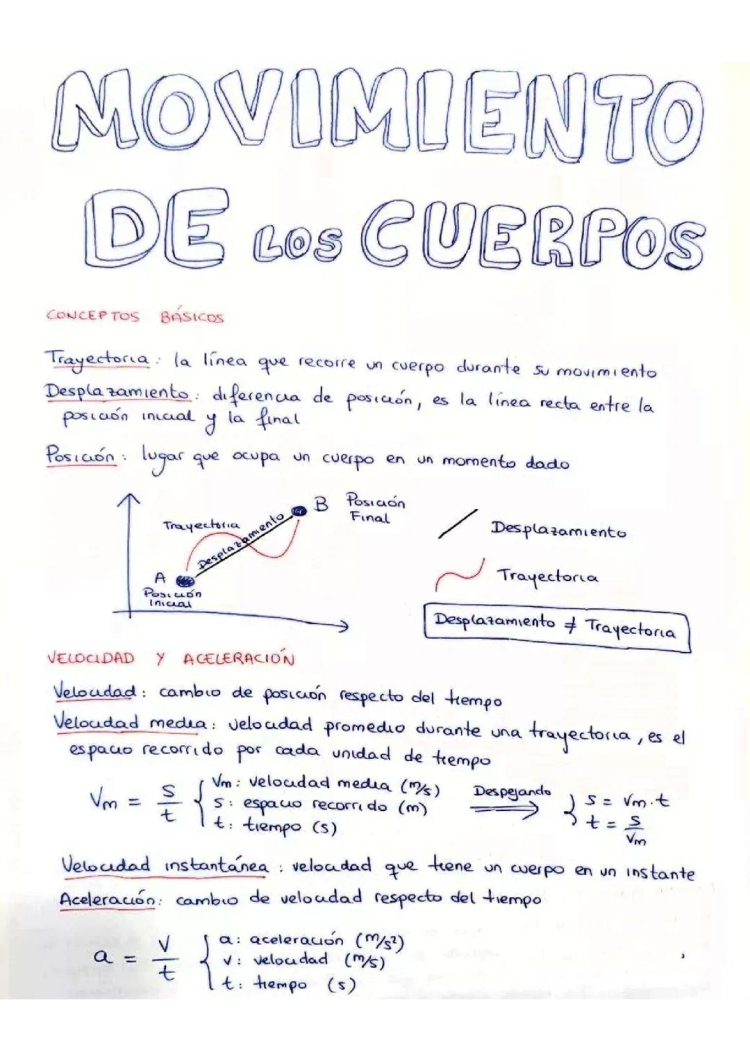 MOVIMIENTO
DE LOS CUERPOS
CONCEPTOS BÁSICOS
Trayectoria: la línea que recorre un cuerpo durante su movimiento
Desplazamiento: diferencia de posición, es la línea recta entre la
posición inicial y la final
Posición: lugar que ocupa un cuerpo en un momento dado
Trayectoria
Desplazamiento
B Posición
Final
A
Posición
Inicial
Desplazamiento
Trayectoria
Desplazamiento ≠ Trayectoria
VELOCIDAD Y ACELERACIÓN
Velocidad: cambio de posición respecto del tiempo
Velocidad media: velocidad promedio durante una trayectoria, es el
espacio recorrido por cada unidad de tiempo
Vm = s/t { Vm: velocidad media (m/s)
s: espacio recorrido (m)
t: tiempo (s)
Despejando
s = Vm·t
t = s/Vm
Velocidad instantánea: velocidad que tiene un cuerpo en un instante
Aceleración: cambio de velocidad respecto del tiempo
a = v/t { a: aceleración (m/s²)
v: velocidad (m/s)
t: tiempo (s)